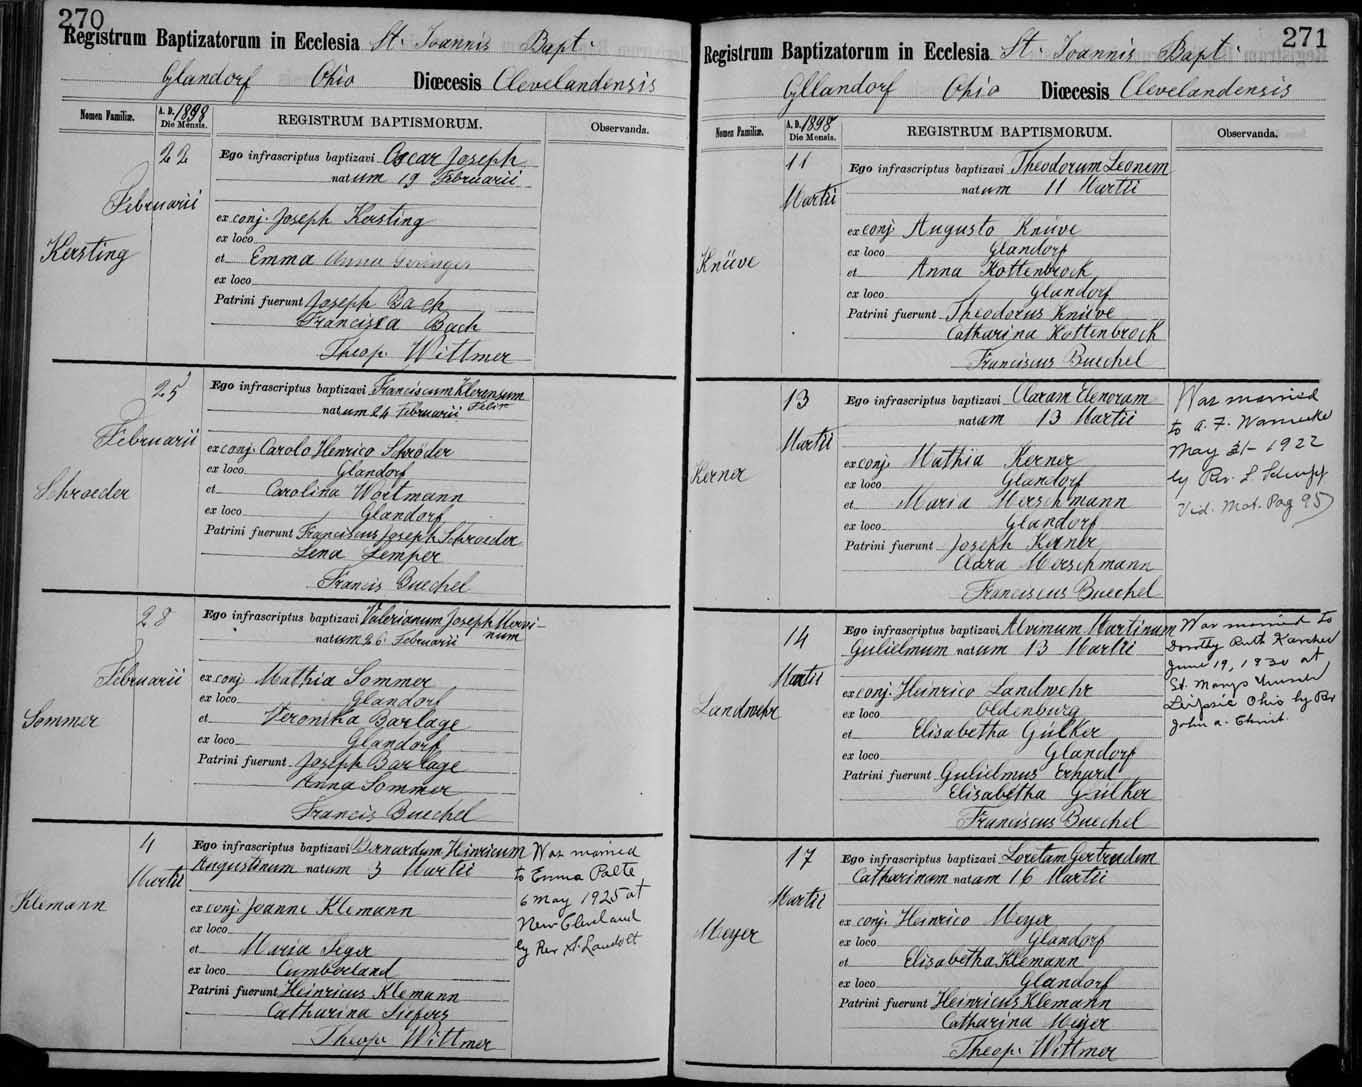 270
Registrum Baptizatorum in Ecclesia St. Joannis Bapt.
Glandorf Ohio Diœcesis Clevelandensis
Nomen Familiæ. A. D. 1898 Die Mensis. REGISTRUM BAPTISMORUM. Observanda.
22 Februarii
Kersting
Ego infrascriptus baptizavi Oscar Joseph
natum 19 Februarii
ex conj. Joseph Kersting
ex loco
et Emma Anna
ex loco
Patrini fuerunt Joseph Bach
Francisca Bach
Theop. Wittmer
25 Februarii
Schroeder
Ego infrascriptus baptizavi Franciscum Klorensum
natum 24 Februarii
ex conj. Carolo Henrico Schröder
ex loco Glandorf
et Carolina Wortmann
ex loco Glandorf
Patrini fuerunt Franciscus Joseph Schroeder
Lena Lemper
Francis Buechel
28 Februarii
Sommer
Ego infrascriptus baptizavi Valerianum Joseph Mervi-
natum 26 Februarii num
ex conj Mathia Sommer
ex loco Glandorf
et Veronika Barlage
ex loco Glandorf
Patrini fuerunt Joseph Barlage
Anna Sommer
Francis Buechel
4 Martii
Klemann
Ego infrascriptus baptizavi Bernardum Heinricum
Augustinum natum 3 Martii
ex conj Joanne Klemann
ex loco
et Maria Seger
ex loco Cumberland
Patrini fuerunt Heinricus Klemann
Catharina Siefers
Theop. Wittmer
Was married
to Emma Palte
6 May 1925 at
New Cleveland
by Rev. S. Landolt
271
Registrum Baptizatorum in Ecclesia St. Joannis Bapt.
Gllandorf Ohio Diœcesis Clevelandensis
Nomen Familiæ. A. D. 1898 Die Mensis. REGISTRUM BAPTISMORUM. Observanda.
11 Martii
Knüve
Ego infrascriptus baptizavi Theodorum Leonem
natum 11 Martii
ex conj Augusto Knüve
ex loco Glandorf
et Anna Kottenbrock
ex loco Glandorf
Patrini fuerunt Theodorus Knüve
Catharina Kottenbrock
Franciscus Buechel
13 Martii
Kerner
Ego infrascriptus baptizavi Claram Elenoram
natam 13 Martii
ex conj. Mathia Kerner
ex loco Glandorf
et Maria Merschmann
ex loco Glandorf
Patrini fuerunt Joseph Kerner
Clara Merschmann
Franciscus Buechel
Was married
to A. F. Warnecke
May 31- 1922
by Rev. L
Vid. Mat. Pag 95)
14 Martii
Landwehr
Ego infrascriptus baptizavi Alvinum Martinum
Gulielmum natum 13 Martii
ex conj. Heinrico Landwehr
ex loco Oldenburg
et Elisabetha Gülker
ex loco Glandorf
Patrini fuerunt Gulielmus Erhard
Elisabetha Gülker
Franciscus Buechel
Was married to
Dorothy Ruth Karcher
June 19, 1930 at
St. Marys Church
Leipsic Ohio by Rev
John A. Christ.
17 Martii
Meyer
Ego infrascriptus baptizavi Loretam Gertrudem
Catharinam natam 16 Martii
ex conj. Heinrico Meyer
ex loco Glandorf
et Elisabetha Klemann
ex loco Glandorf
Patrini fuerunt Heinricus Klemann
Catharina Meyer
Theop. Wittmer